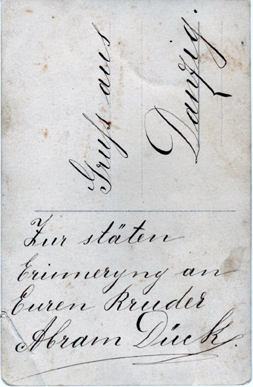 Gruß aus
Danzig.
Zur stäten
Erinneryng an
Euren Bruder
Abram Dück.